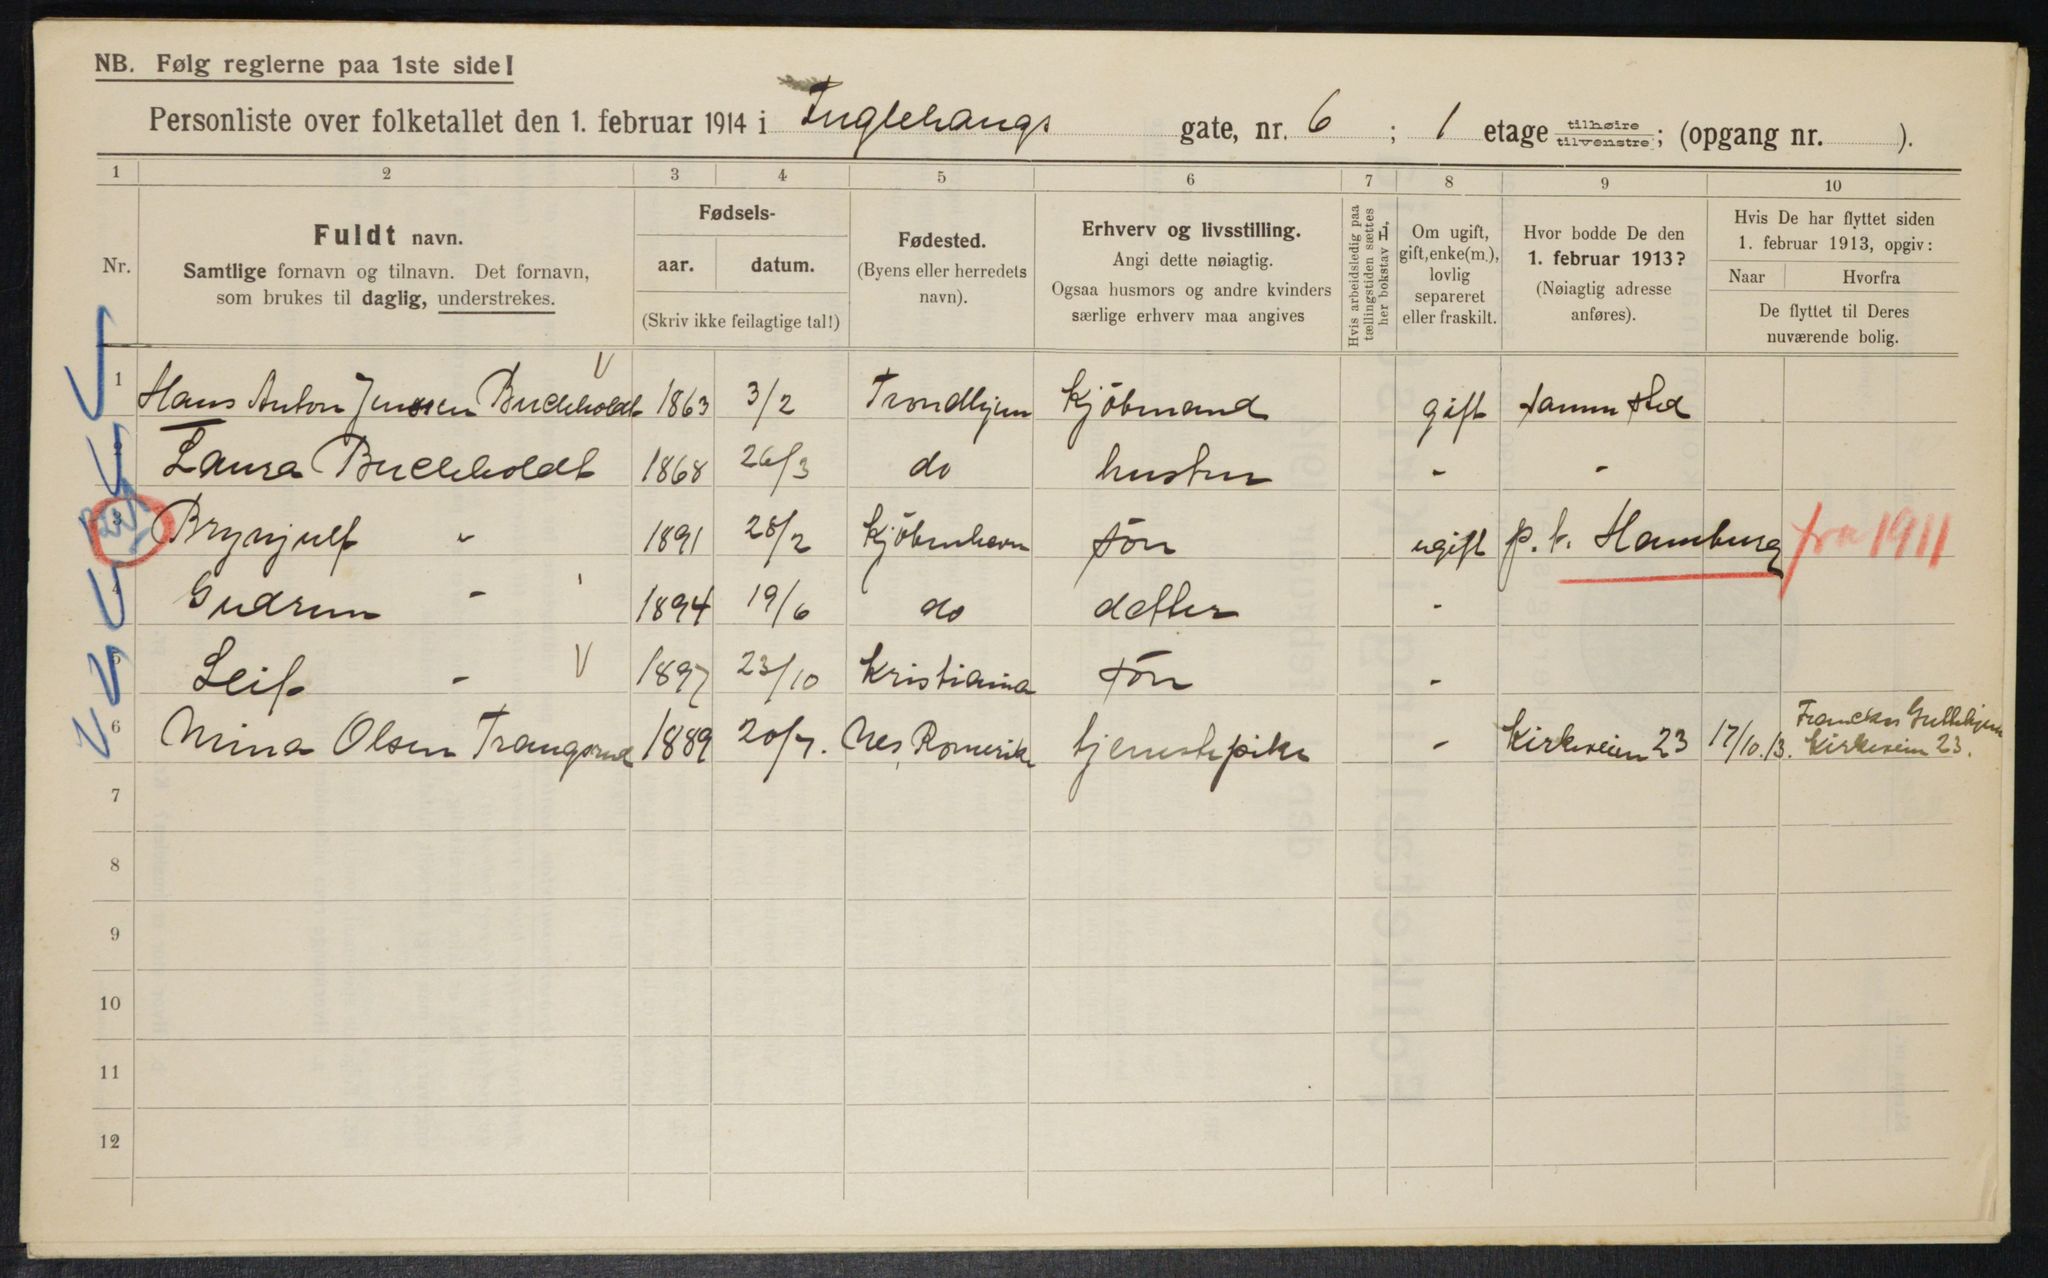 NB. Følg reglerne paa 1ste side!
Personliste over folketallet den 1. februar 1914 i Fuglehaugs gate, nr. 6 ; 1 etage tilhøire tilvenstre ; (opgang nr. ).
1 2 3 4 5 6 7 8 9 10
Nr.
Fuldt navn.
Samtlige fornavn og tilnavn. Det fornavn,
som brukes til daglig, understrekes.
Fødsels-
aar. datum.
(Skriv ikke feilagtige tal!)
Fødested.
(Byens eller herredets
navn).
Erhverv og livsstilling.
Angi dette nøiagtig.
Ogsaa husmors og andre kvinders
særlige erhverv maa angives
Hvis arbeidsledig paa
tællingstiden sættes
her bokstav H.
Om ugift,
gift, enke(m.),
lovlig
separeret
eller fraskilt.
Hvor bodde De den
1. februar 1913?
(Nøiagtig adresse
anføres).
Hvis De har flyttet siden
1. februar 1913, opgiv:
Naar Hvorfra
De flyttet til Deres
nuværende bolig.
1 Hans Anton Jenssen Buchholdt 1863 3/2 Trondhjem Kjöbmand gift samme sted
2 Laura Buchholdt 1868 26/3 do hustru " "
3 Brynjulf " 1891 28/2 Kjöbenhavn sön ugift p. t. Hamburg fra 1911
4 Gudrun " 1894 19/6 do datter "
5 Leif " 1897 23/10 Kristiania sön "
6 Mina Olsen Trangsrud 1889 20/7. Nes, Romerike tjenestepike " Kirkeveien 23 17/10.13.
Kirkeveien 23.
7
8
9
10
11
12